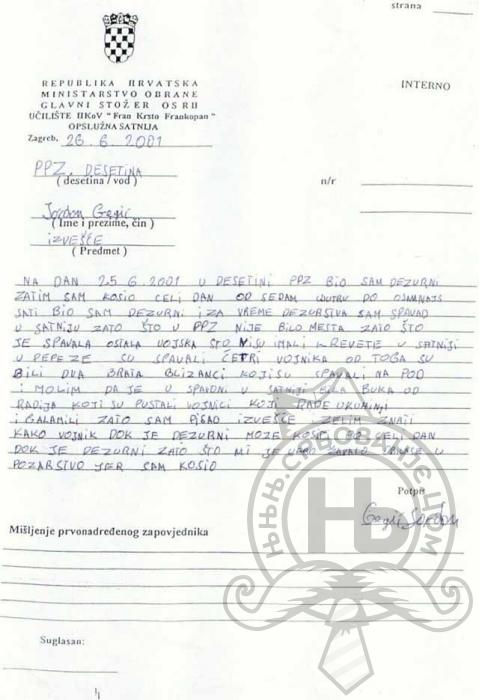 strana
REPUBLIKA HRVATSKA
MINISTARSTVO OBRANE
GLAVNI STOŽER OS RH
UČILIŠTE HKoV "Fran Krsto Frankopan"
OPSLUŽNA SATNIJA
INTERNO
Zagreb, 26 6. 2001
PPZ. DESETINA
( desetina / vod )
n/r
Jordon Gegić
( Ime i prezime, čin )
IZVEŠĆE
( Predmet )
NA DAN 25 6. 2001 U DESETINI PPZ BIO SAM DEZURNI
ZATIM SAM KOSIO CELI DAN OD SEDAM UJUTRU DO OSAMNAJS
SATI BIO SAM DEZURNI I ZA VREME DEZURSTVA SAM SPAVAO
U SATNIJU ZATO ŠTO U PPZ NIJE BILO MESTA ZATO ŠTO
JE SPAVALA OSTALA VOJSKA ŠTO NISU IMALI KREVETE U SATNIJI
U PEPEZE SU SPAVALI ČETRI VOJNIKA OD TOGA SU
BILI DVA BRATA BLIZANCI KOJI SU SPAVALI NA POD
I MOLIM DA JE U SPAVONI U SATNIJI BILA BUKA OD
RADIJA KOJI SU PUSTALI VOJNICI KOJI RADE U KUHINJI
I GALAMILI ZATO SAM PISAO IZVEŠĆE ZELIM ZNATI
KAKO VOJNIK DOK JE DEZURNI MOZE KOSIT PO CELI DAN
DOK JE DEZURNI ZATO ŠTO MI JE UPAO U
POZARSTVO JER SAM KOSIO
Potpis
Gegić Jordon
Mišljenje prvonadređenog zapovjednika
Suglasan:
њњњ.србовање.цом
Њ